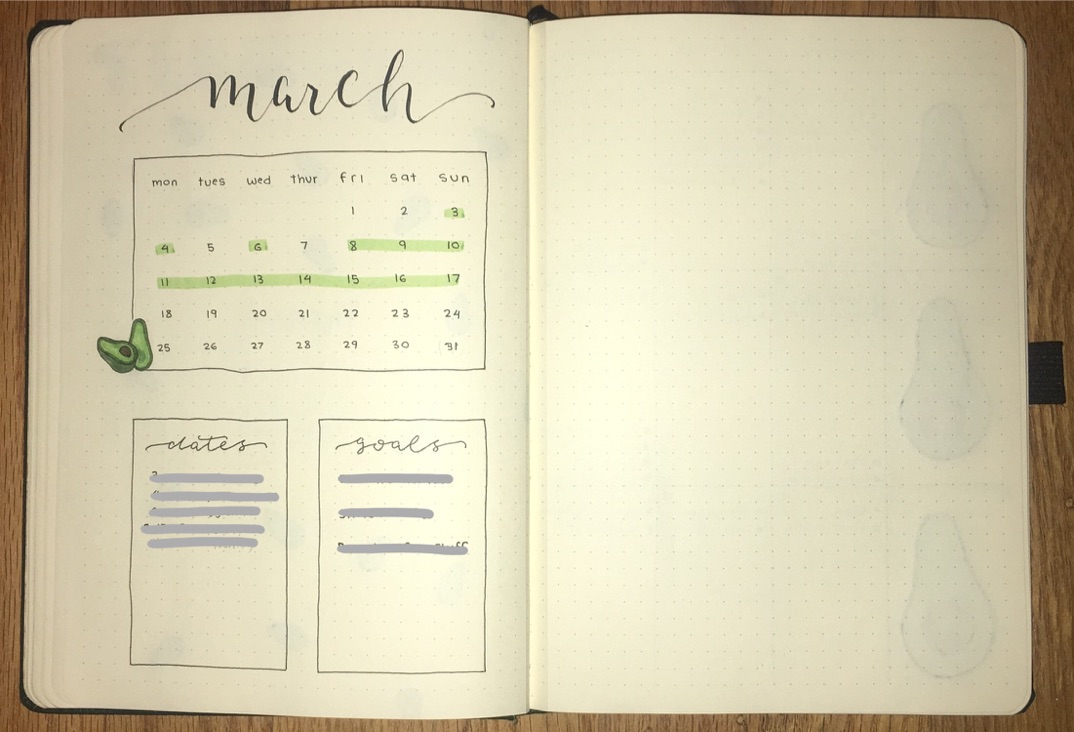 march
mon tues wed thur fri sat sun
1 2 3
4 5 6 7 8 9 10
11 12 13 14 15 16 17
18 19 20 21 22 23 24
25 26 27 28 29 30 31
dates goals